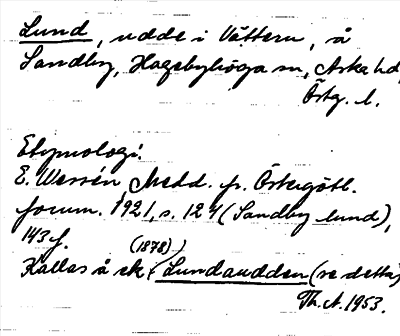 Lund, udde i Vättern, å
Sandby, Hagebyhöga sn, Aska hd,
Östg. l.
Etymologi.
E. Wessén, Medd. fr. Östergötl.
fornm. 1921, s. 124 (Sandby lund),
143 f.
(1878)
Kallas å ek. Lundaudden (se detta)
Th. A. 1953.